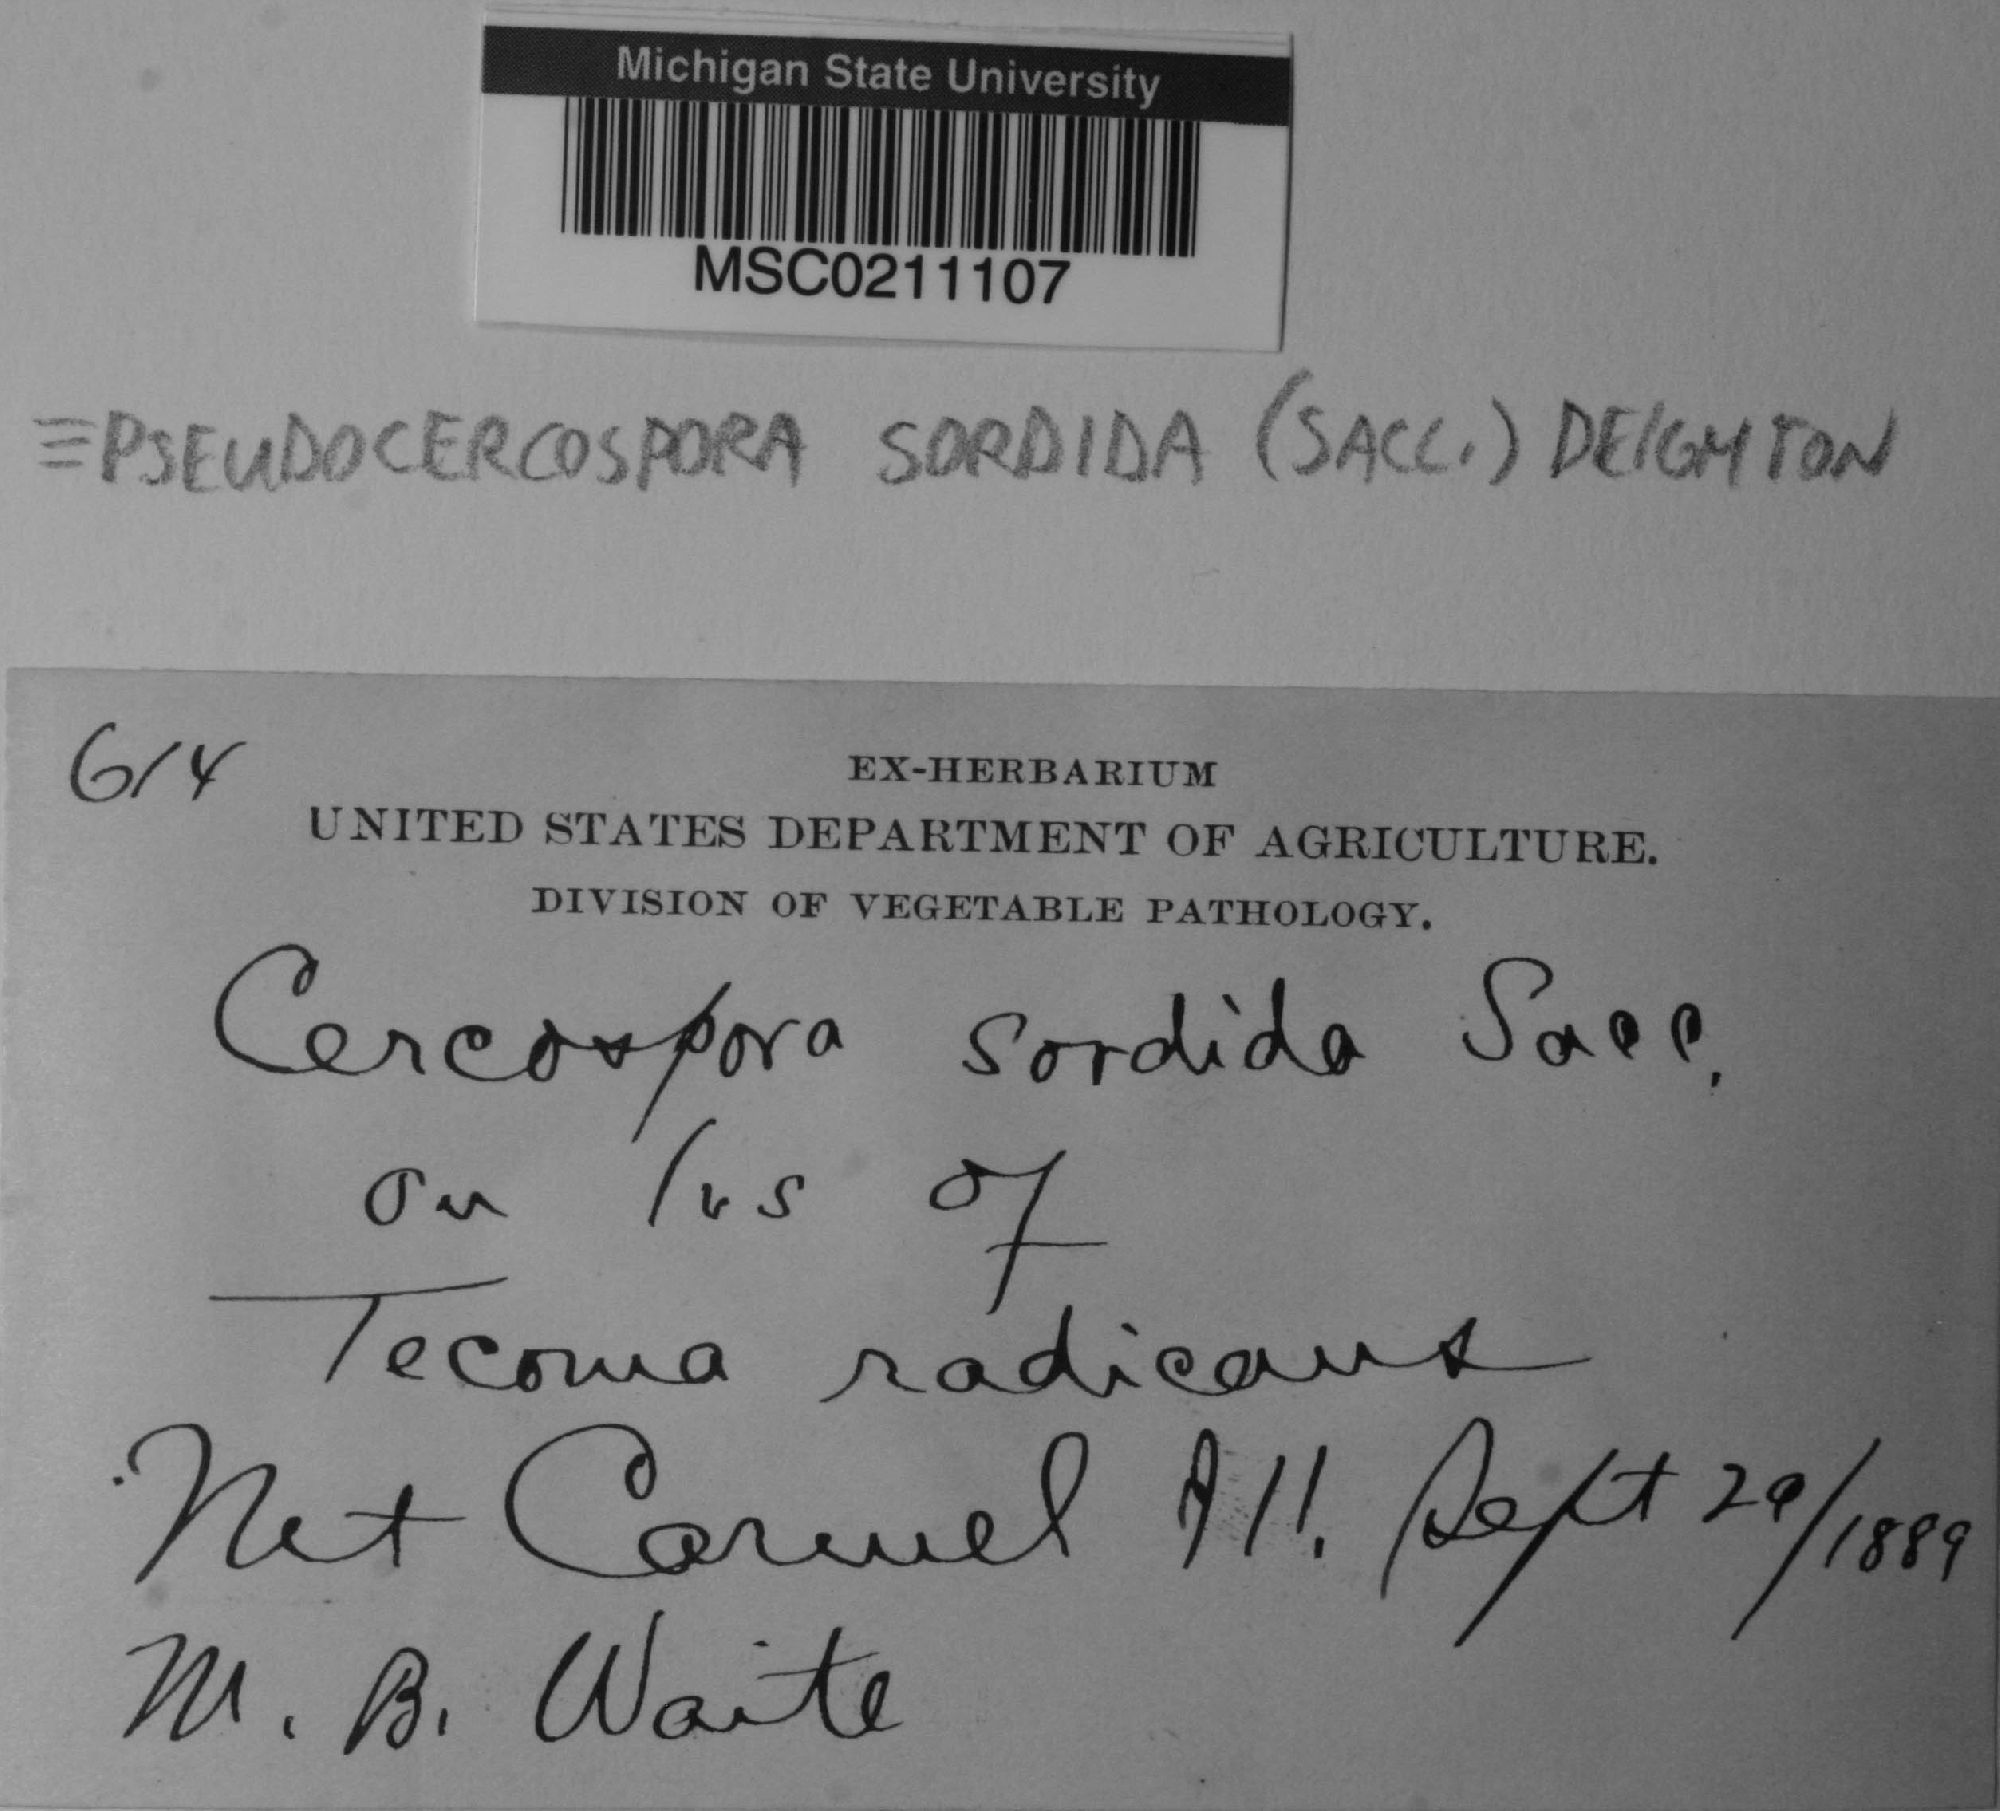 Michigan State University
MSC0211107
≡PSEUDOCERCOSPORA SORDIDA (SACC.) DEIGHTON
614
EX-HERBARIUM
UNITED STATES DEPARTMENT OF AGRICULTURE.
DIVISION OF VEGETABLE PATHOLOGY.
Cercospora sordida Sacc.
on lvs of
Tecoma radicans
Mt Carmel Ill. Sept 29/1889
M. B. Waite